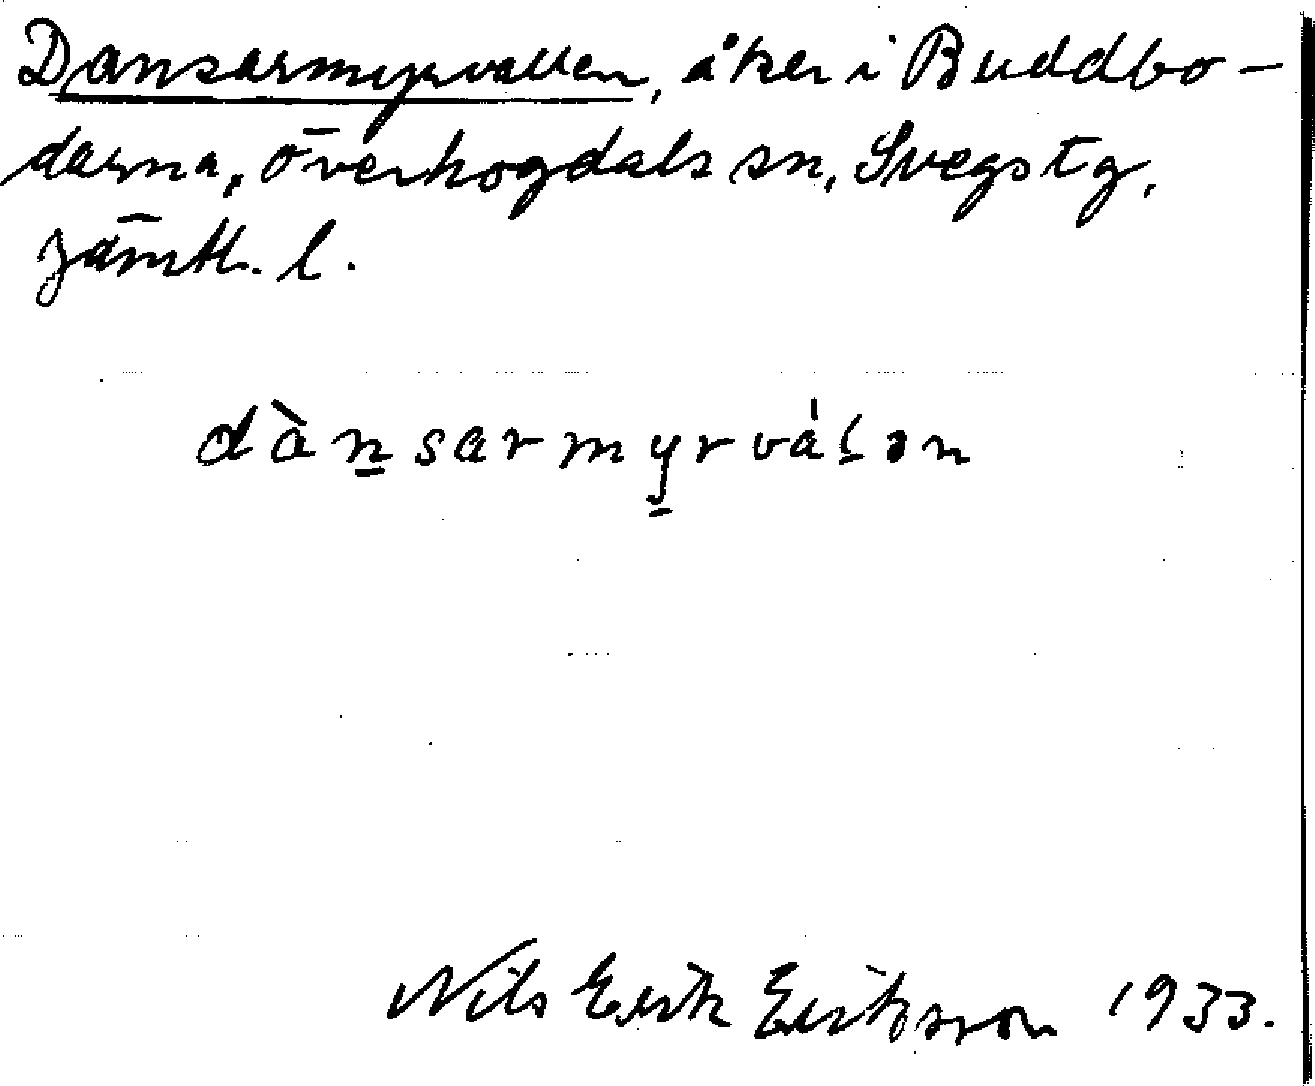 Dansarmyrvallen, åker i Buddbo-
darna, Överhogdals sn, Svegs tg,
Jämtl. l.
dànsarmyrváLən
Nils Erik Eriksson 1933.